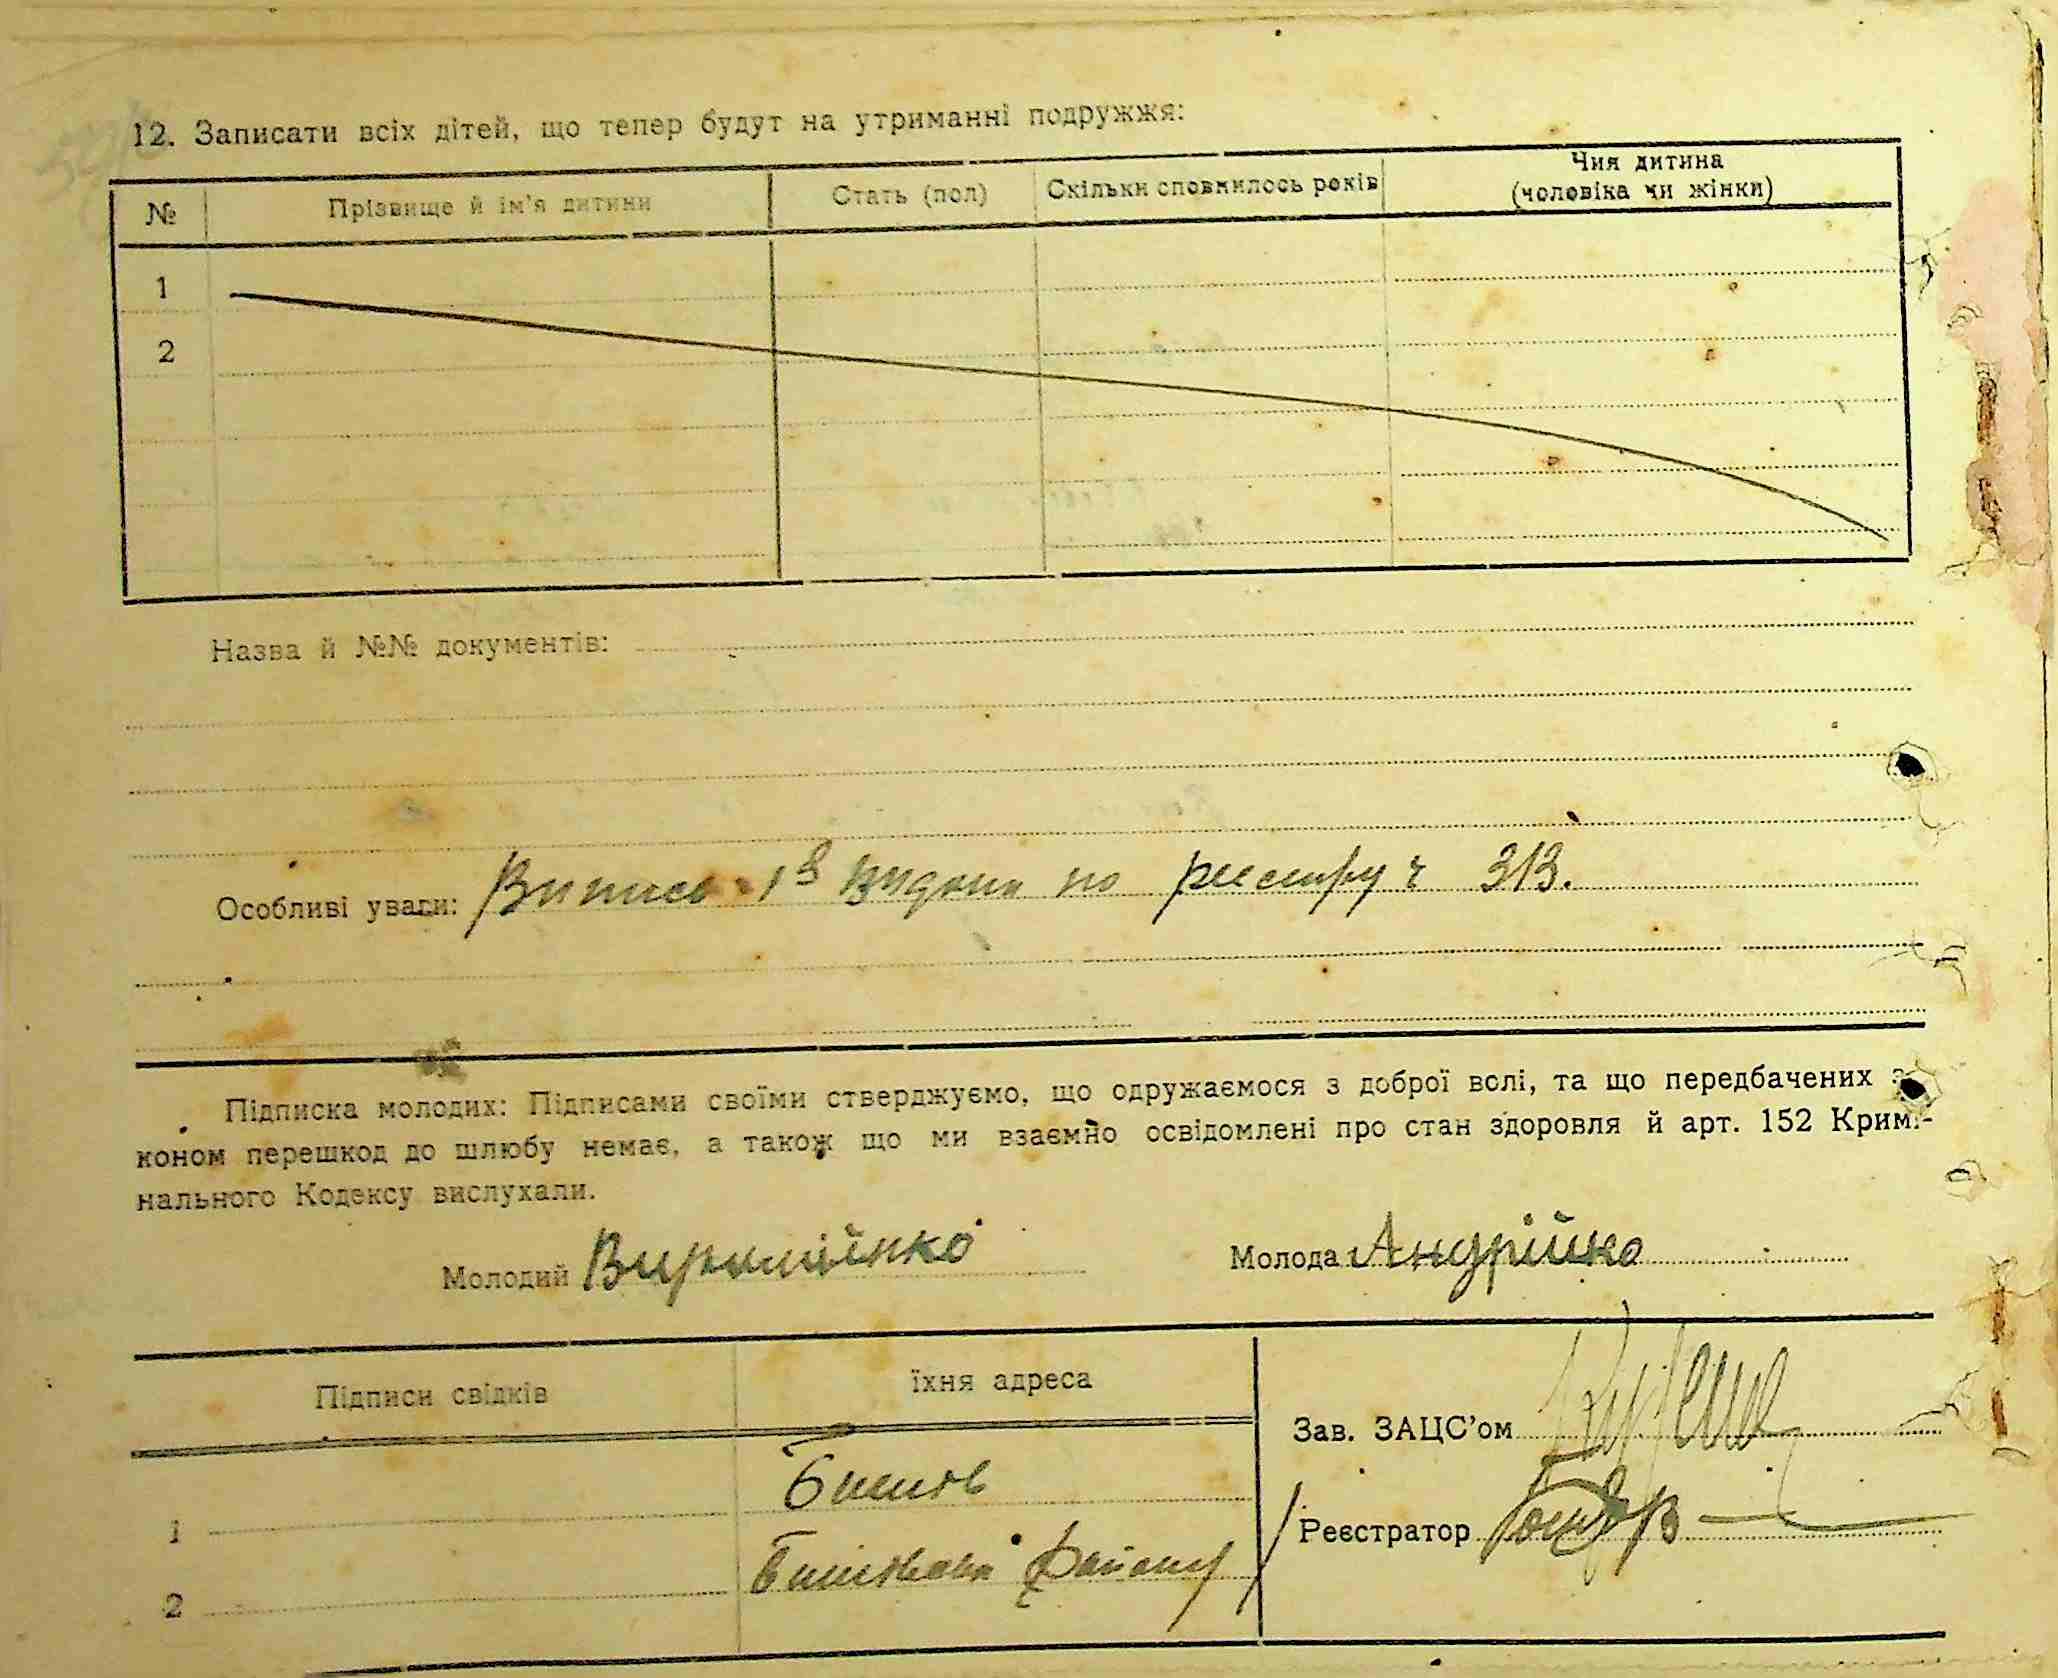 12. Записати всіх дітей, що тепер будут на утриманні подружжя:
№ Прізвище й ім'я дитини Стать (пол) Скільки сповнилось років Чия дитина (чоловіка чи жінки)
1
2
Назва й №№ документів:
Особливі уваги: Випись видана по реєстру ч 313.
Підписка молодих: Підписами своїми стверджуємо, що одружаємося з доброї волі, та що передбачених за-
коном перешкод до шлюбу немає, а також що ми взаємно освідомлені про стан здоровля й арт. 152 Кримі-
нального Кодексу вислухали.
Молодий Молода Андрійко
Підписи свідків їхня адреса
Зав. ЗАЦС'ом
1
Реєстратор
2 району